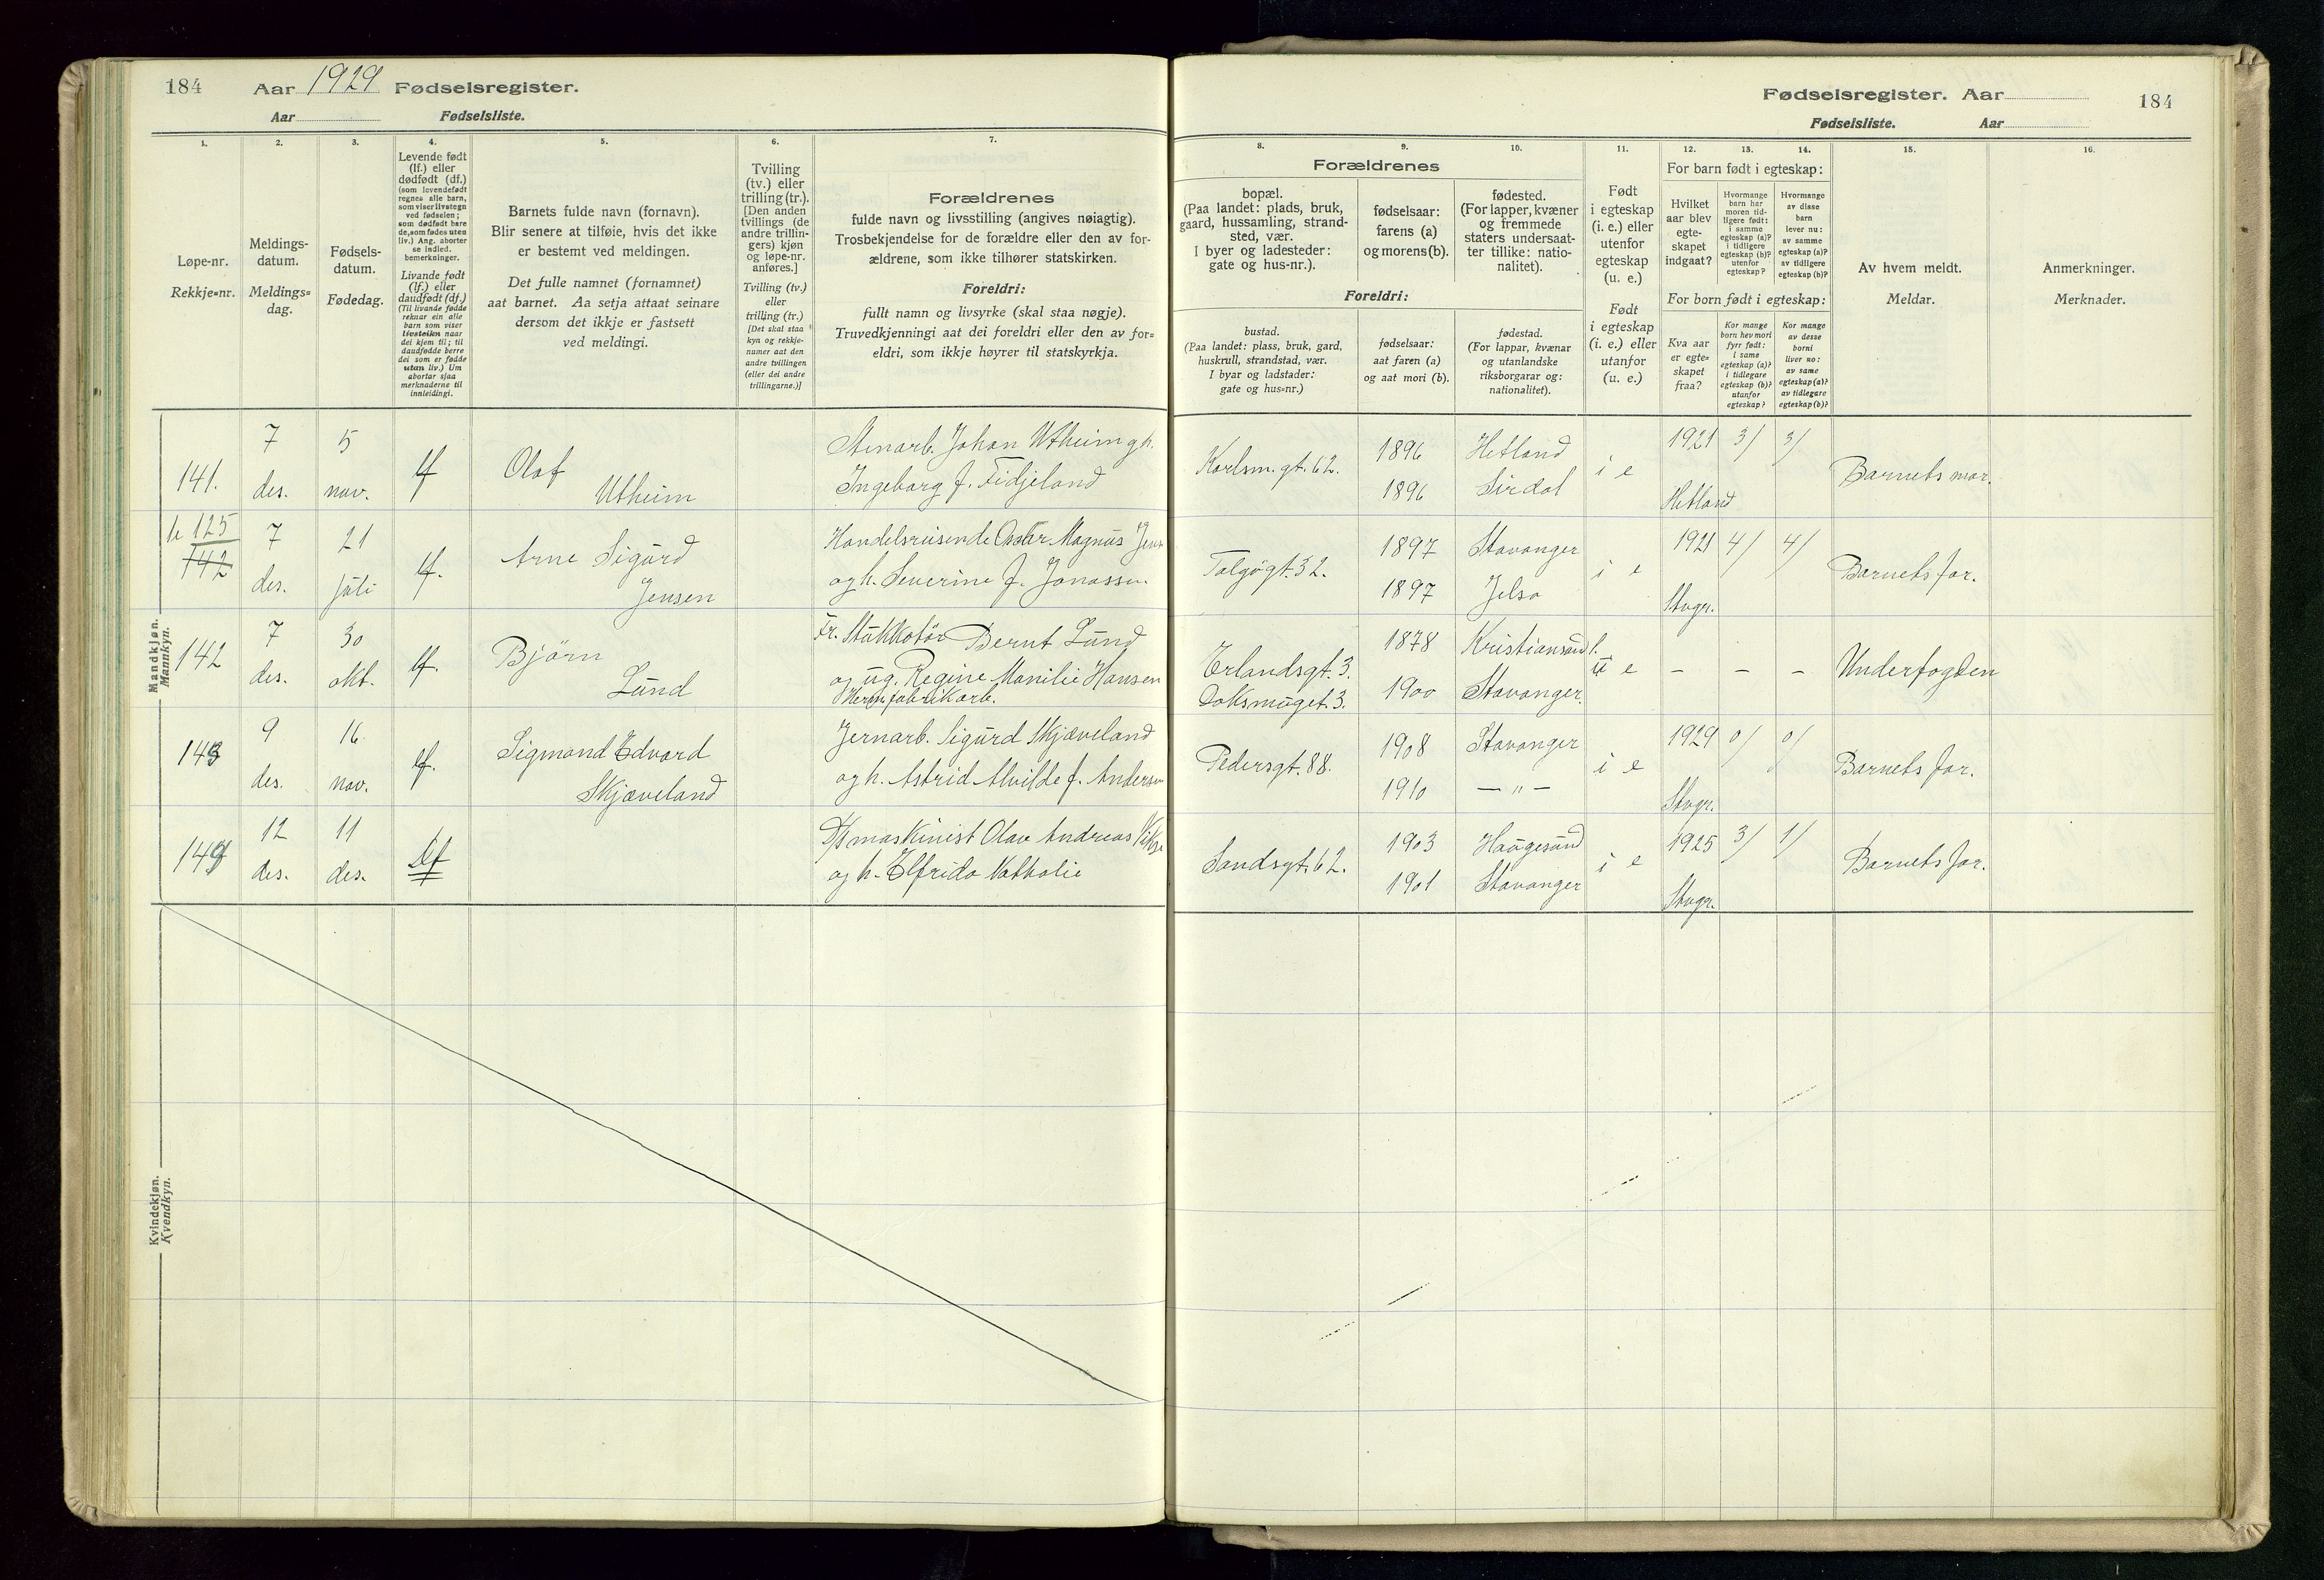 184 Aar 1929 Fødselsregister.
Aar Fødselsliste.
1. 2. 3. 4. 5. 6. 7.
Løpe-nr.
Rekkje=nr.
Meldings-
datum.
Meldings=
dag.
Fødsels-
datum.
Fødedag.
Levende født
(lf.) eller
dødfødt (df.)
(som levendefødt
regnes alle barn,
som viser livstegn
ved fødselen;
som dødfødt bare
de, som fødes uten
liv.) Ang. aborter
se indled.
bemerkninger.
Livande født
(lf.) eller
daudfødt (df.)
(Til livande fødde
reknar ein alle
barn som viser
livsteikn naar
dei kjem til; til
daudfødde berre
dei som er fødde
utan liv.) Um
abortar sjaa
merknaderne til
innleidingi.
Barnets fulde navn (fornavn).
Blir senere at tilføie, hvis det ikke
er bestemt ved meldingen.
Det fulle namnet (fornamnet)
aat barnet. Aa setja attaat seinare
dersom det ikkje er fastsett
ved meldingi.
Tvilling
(tv.) eller
trilling (tr.).
[Den anden
tvillings (de
andre trillin-
gers) kjøn
og løpe-nr.
anføres.]
Tvilling (tv.)
eller
trilling (tr.)
[Det skal staa
kyn og rekkje-
numer aat den
andre tvillingen
(eller dei andre
trillingarne.)]
Forældrenes
fulde navn og livsstilling (angives nøiagtig).
Trosbekjendelse for de forældre eller den av for-
ældrene, som ikke tilhører statskirken.
Foreldri:
fullt namn og livsyrke (skal staa nøgje).
Truvedkjenningi aat dei foreldri eller den av for=
eldri, som ikkje høyrer til statskyrkja.
Mandkjøn.
Mannkyn.
141. 7 des. 5 nov. lf Olaf
Utheim
Stenarb. Johan Utheim og h.
Ingeborg f. Fidjeland
125
142 7 des. 21 juli lf. Arne Sigurd
Jensen
Handelsreisende Oskar Magnus
og h. Severine f. Jonassen
142 7 des. 30 okt. lf. Bjørn
Lund
Fr. Stukkatør Bernt Lund
og ug. Regine Monilie Hansen
Herm. fabrikarb.
143 9 des. 16 nov. lf. Sigmond Edvard
Skjæveland
Jernarb. Sigurd Skjæveland
og h. Astrid Alvilde f. Andersen
144 12 des. 11 des. Df
maskinist Olav Andreas
og h. Elfrida Nathalie
Kvindekjøn.
Kvendkyn.
Fødselsregister. Aar 184
Fødselsliste. Aar
8. 9. 10. 11. 12. 13. 14. 15. 16.
Forældrenes
bopæl.
(Paa landet: plads, bruk,
gaard, hussamling, strand-
sted, vær.
I byer og ladesteder:
gate og hus-nr.).
fødselsaar:
farens (a)
og morens (b).
fødested.
(For lapper, kvæner
og fremmede
staters undersaat-
ter tillike: natio-
nalitet).
Foreldri:
bustad.
(Paa landet: plass, bruk, gard,
huskrull, strandstad, vær.
I byar og ladstader:
gate og hus=nr.)
fødselsaar:
aat faren (a)
og aat mori (b).
fødestad.
(For lappar, kvænar
og utanlandske
riksborgarar og:
nationalitet).
Født
i egteskap
(i. e.) eller
utenfor
egteskap
(u. e.)
Født
i egteskap
(i. e.) eller
utanfor
(u. e.)
For barn født i egteskap:
Hvilket
aar blev
egte-
skapet
indgaat?
Hvormange
barn har
moren tid-
ligere født:
i samme
egteskap (a)?
i tidligere
egteskap (b)?
utenfor
egteskap?
Hvormange
av disse
barn
lever nu:
av samme
egteskap (a)?
av tidligere
egteskap (b)?
For born født i egteskap:
Kva aar
er egte=
skapet
fraa?
Kor mange
born hev mori
fyrr født:
i same
egteskap (a)?
i tidlegare
egteskap (b)?
utanfor
egteskap?
Kor mange
av desse
borni
liver no:
av same
egteskap (a)?
av tidlegare
egteskap (b)?
Av hvem meldt.
Meldar.
Anmerkninger.
Merknader.
Karlsm. gt. 62. 1896 Hetland i e 1921 3/ 3/ Barnets mor.
1896 Sirdal Hetland
Tolgøgt. 32. 1897 Stavanger i e 1921 4/ 4/ Barnets far.
1897 Jelsa Stvgr.
Erlandsgt. 3. 1878 Kristiansand u e - - - Underfogden
3. 1900 Stavanger.
Pedersgt. 88. 1908 Stavanger i e 1929 0/ 0/ Barnets far.
1910 — " — Stvgr.
Sandsgt. 62. 1903 Haugesund i e 1925 3/ 1/ Barnets far.
1901 Stavanger Stvgr.